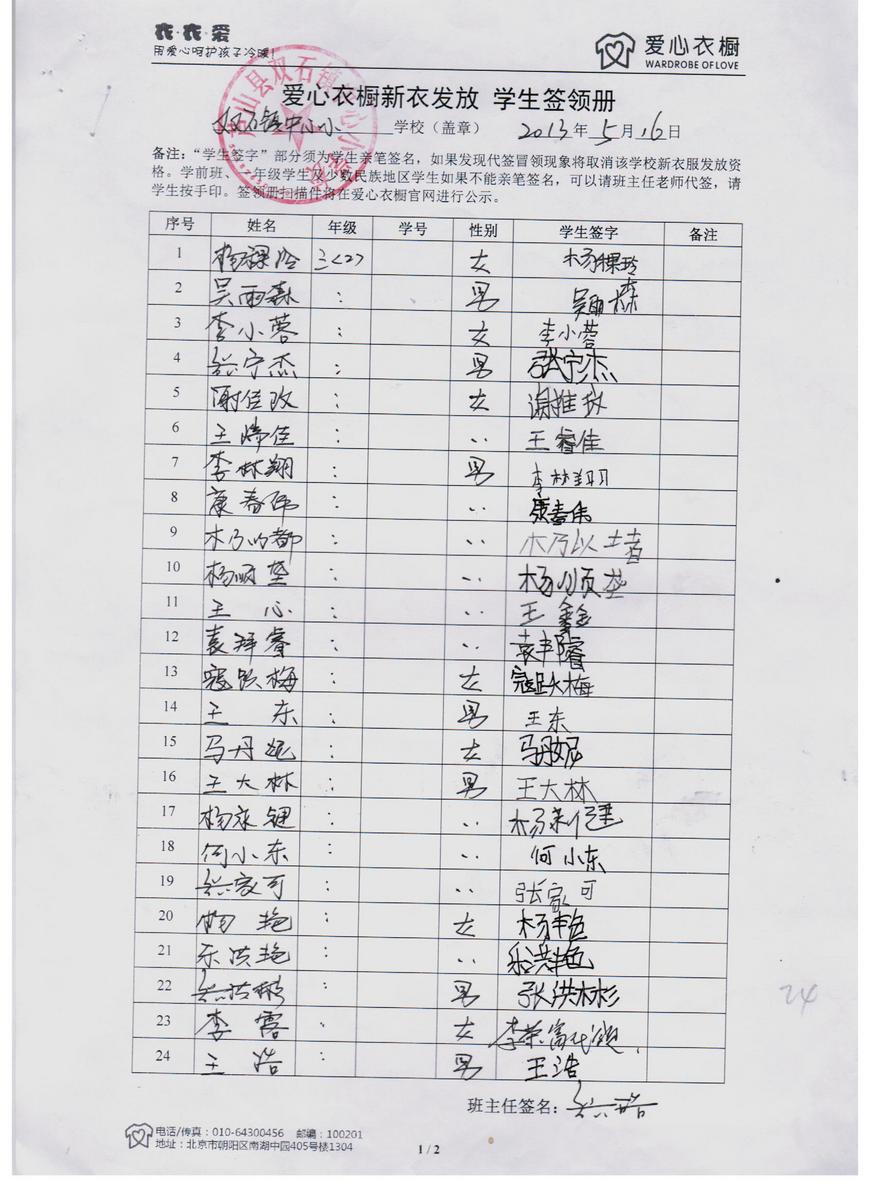 衣·衣·爱
用爱心呵护孩子冷暖!
爱心衣橱
WARDROBE OF LOVE
爱心衣橱新衣发放 学生签领册
双石镇中心小 学校（盖章） 2013年5月16日
备注：“学生签字”部分须为学生亲笔签名，如果发现代签冒领现象将取消该学校新衣服发放资
格。学前班、一年级学生及少数民族地区学生如果不能亲笔签名，可以请班主任老师代签，请
学生按手印。签领册扫描件将在爱心衣橱官网进行公示。
序号 姓名 年级 学号 性别 学生签字 备注
1 三<2> 女 杨稞玲
2 吴雨森 : 男 吴雨森
3 李小蓉 : 女 李小蓉
4 张宁杰 : 男 张宁杰
5 谢佳玫 : 女
6 王 佳 : 〃 王睿佳
7 李林翔 : 男 李林翔
8 康春伟 : 〃 康春伟
9 : 〃 木乃以
10 杨顺垄 : 〃 杨顺垄
11 王心 : 〃 王鑫
12 袁 睿 : 〃 袁 睿
13 寇跃梅 : 女 寇跃梅
14 王东 : 男 王东
15 马丹妮 : 女 马丹妮
16 王大林 : 男 王大林
17 杨 : 〃 杨
18 何小东 : 〃 何小东
19 张家可 : 〃 张家可
20 杨艳 : 女 杨艳
21 乐洪艳 : 〃 洪艳
22 张洪彬 : 男 张洪彬
23 李雪 : 女 李荣富代领
24 王浩 : 男 王浩
24
班主任签名：
电话/传真：010-64300456 邮编：100201
地址：北京市朝阳区南湖中园405号楼1304
1 / 2